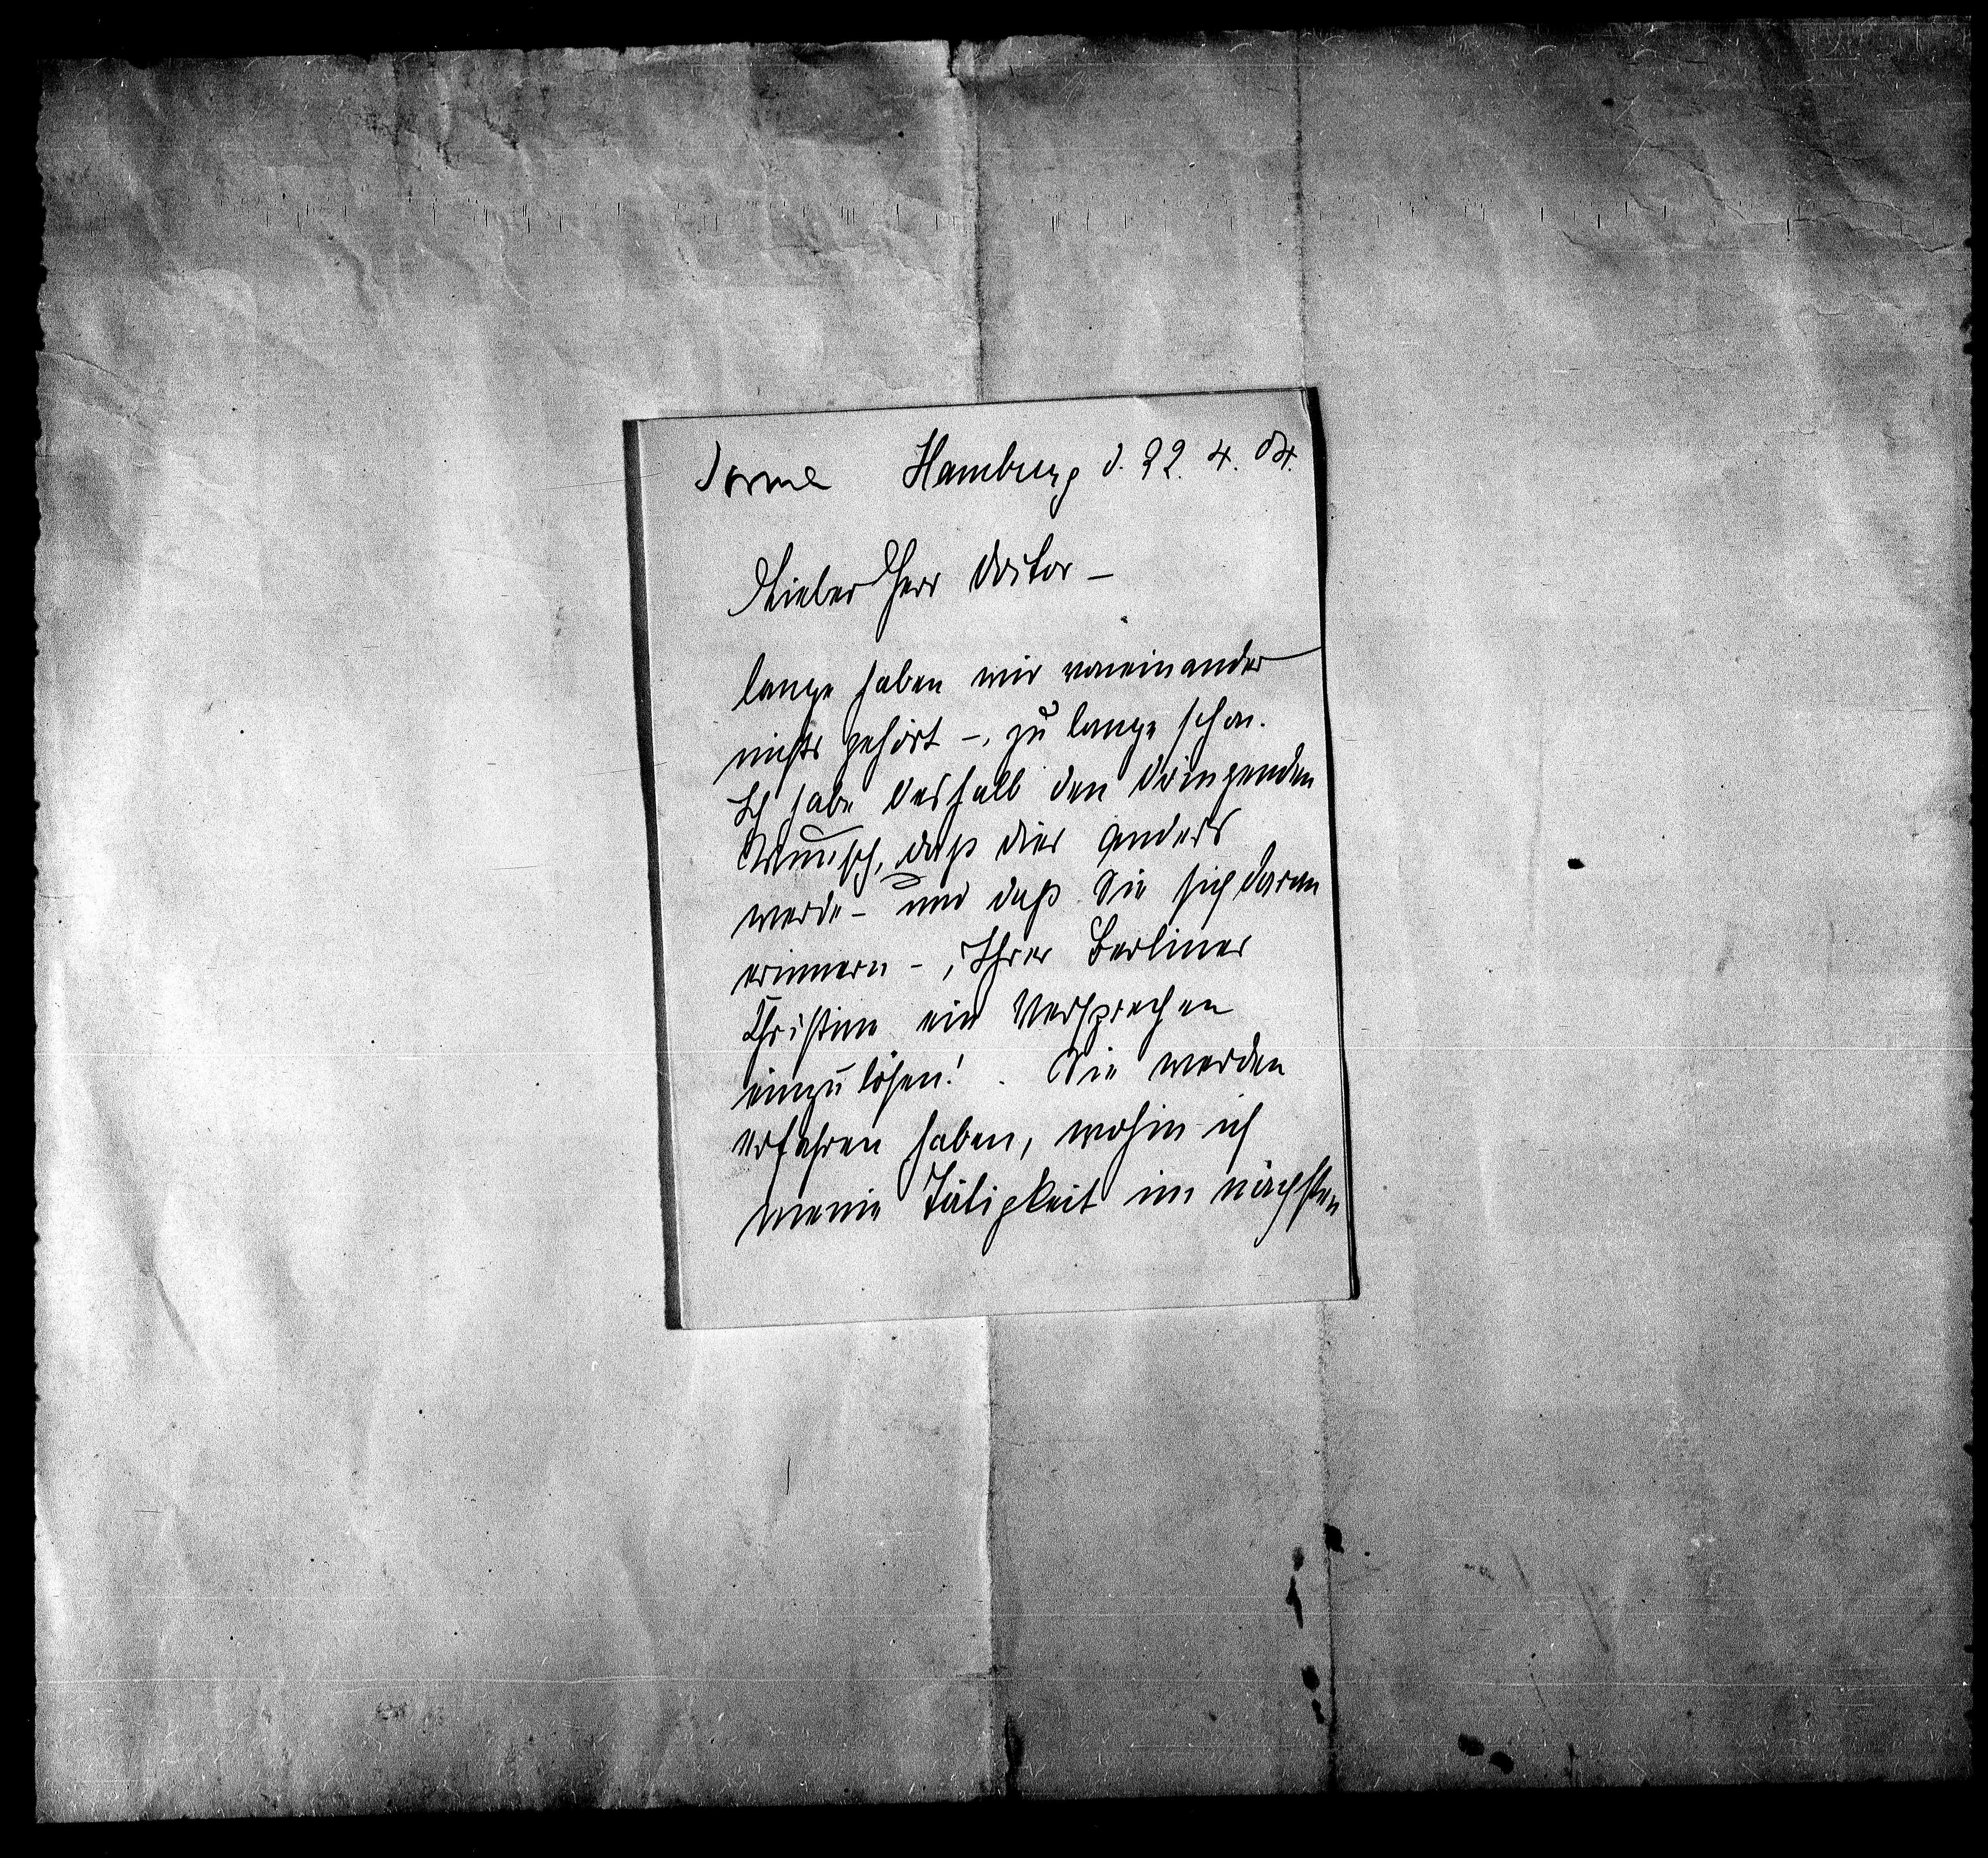 Hamburg d. 22. 4. 04.
Lieber Herr Doctor –
lange haben wir voneinander
nichts gehört –, zu lange schon.
Ich habe deshalb den dringenden
Wunsch, daß dies anders
werde – und daß Sie sich daran
erinnern –, Ihrer Berliner
Christine ein Versprechen
einzulösen! . Sie werden
erfahren haben, wohin ich
meine Tätigkeit im nächsten